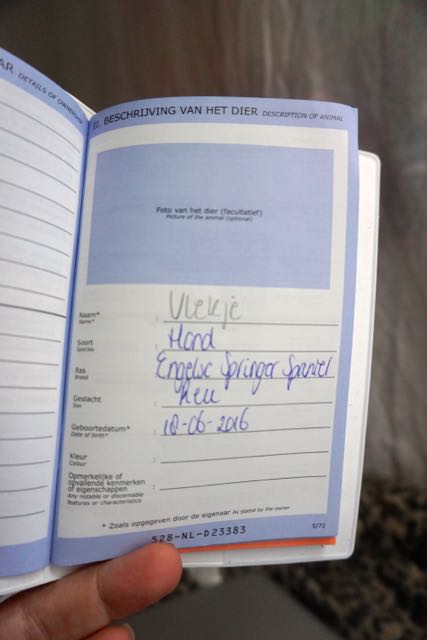 AR DETAILS OF OWNERSHIP
II. BESCHRIJVING VAN HET DIER DESCRIPTION OF ANIMAL
Foto van het dier (facultatief)
Picture of the animal (optional)
Naam* : Vlekje
Name*
Soort : Hond
Species
Ras Engelse Springer Spaniel
Breed
Geslacht : Reu
Sex
Geboortedatum* : 18-06-2016
Date of birth*
Kleur :
Colour
Opmerkelijke of
opvallende kenmerken
of eigenschappen :
Any notable or discernable
features or characteristics
* Zoals opgegeven door de eigenaar As stated by the owner
528-NL-D23383
5/72